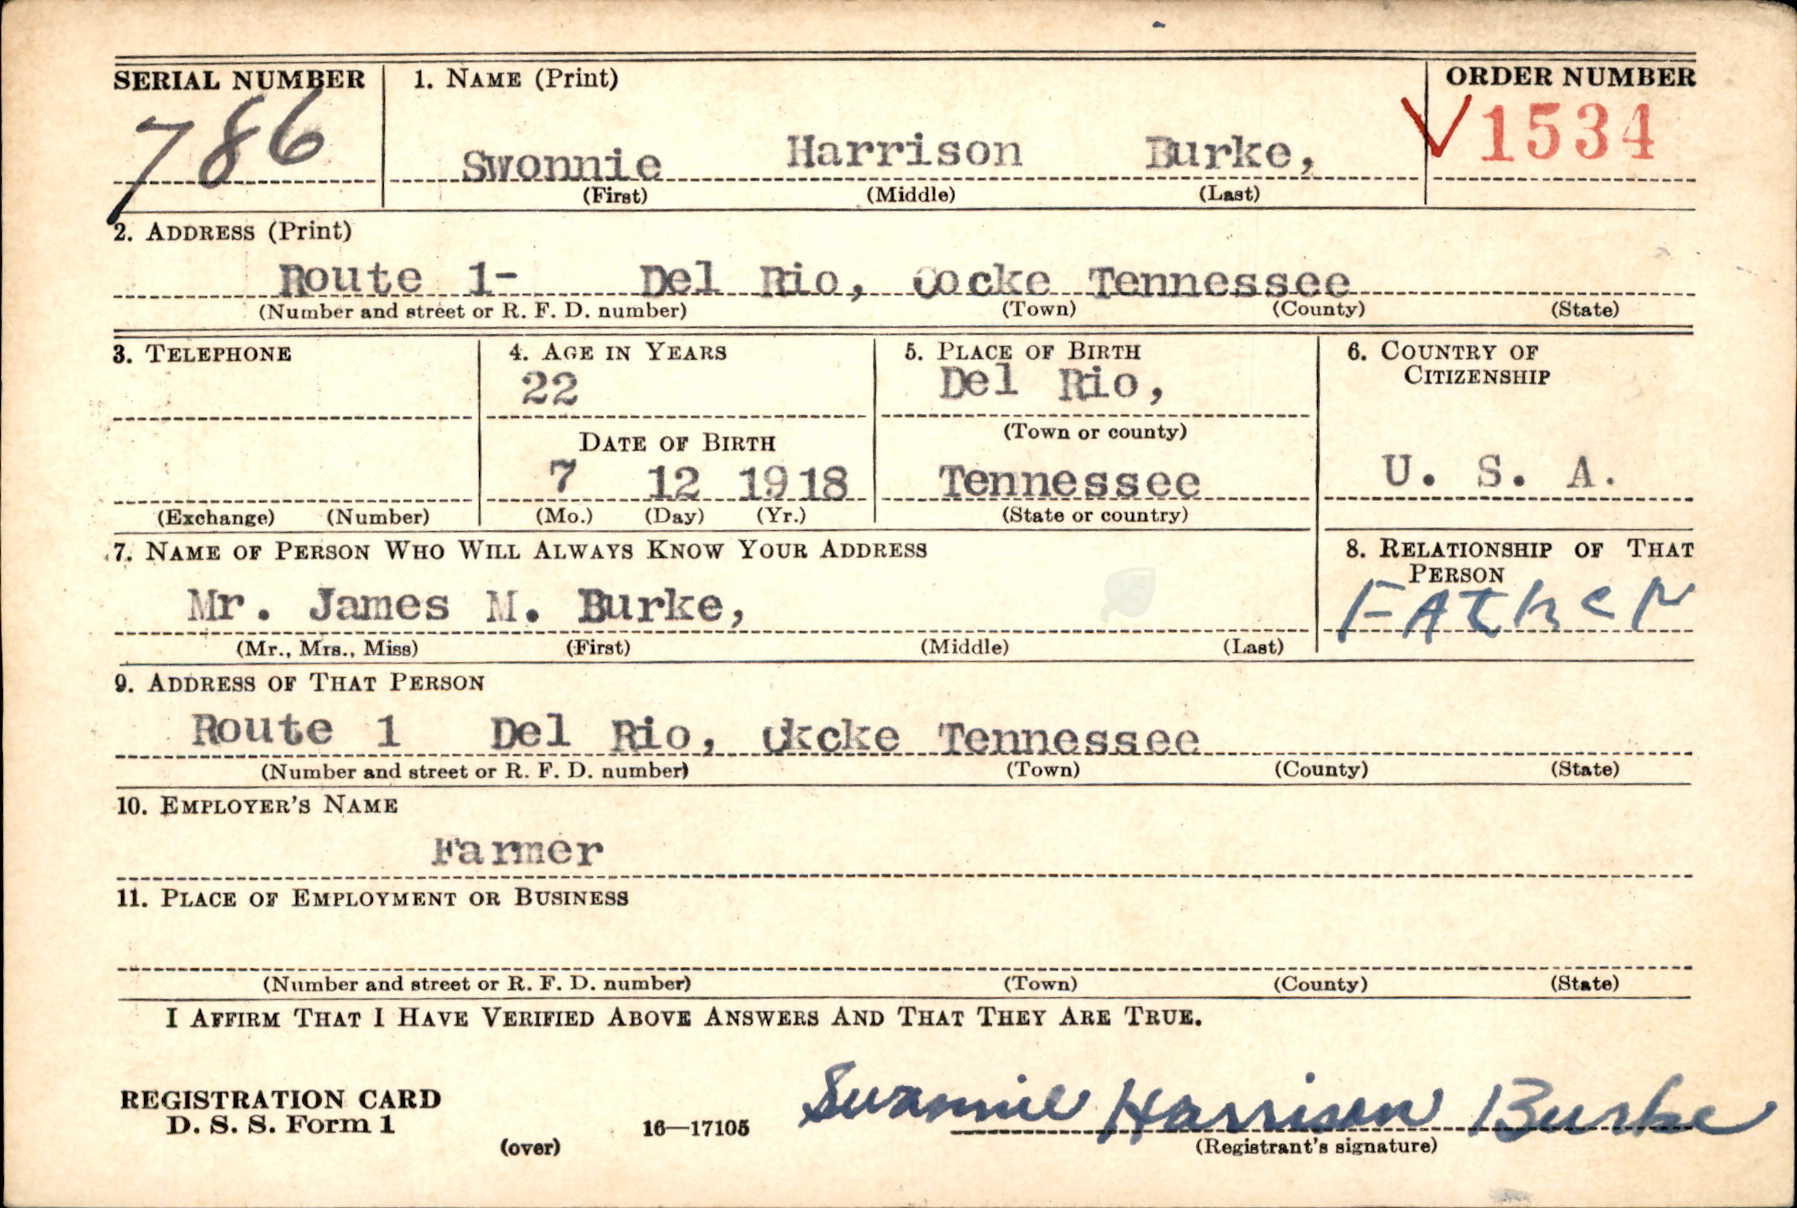 SERIAL NUMBER 1. NAME (Print) ORDER NUMBER
786 Swonnie Harrison Burke, ✓1534
(First) (Middle) (Last)
2. ADDRESS (Print)
Route 1- Del Rio, Cocke Tennessee
(Number and street or R. F. D. number) (Town) (County) (State)
3. TELEPHONE 4. AGE IN YEARS 5. PLACE OF BIRTH 6. COUNTRY OF
CITIZENSHIP
22 Del Rio,
DATE OF BIRTH (Town or county)
7 12 1918 Tennessee U. S. A.
(Exchange) (Number) (Mo.) (Day) (Yr.) (State or country)
7. NAME OF PERSON WHO WILL ALWAYS KNOW YOUR ADDRESS 8. RELATIONSHIP OF THAT
PERSON
Mr. James M. Burke, Father
(Mr., Mrs., Miss) (First) (Middle) (Last)
9. ADDRESS OF THAT PERSON
Route 1 Del Rio, Ckcke Tennessee
(Number and street or R. F. D. number) (Town) (County) (State)
10. EMPLOYER'S NAME
Farmer
11. PLACE OF EMPLOYMENT OR BUSINESS
(Number and street or R. F. D. number) (Town) (County) (State)
I AFFIRM THAT I HAVE VERIFIED ABOVE ANSWERS AND THAT THEY ARE TRUE.
REGISTRATION CARD
D. S. S. Form 1
(over) 16—17105
Swonnie Harrison Burke
(Registrant's signature)